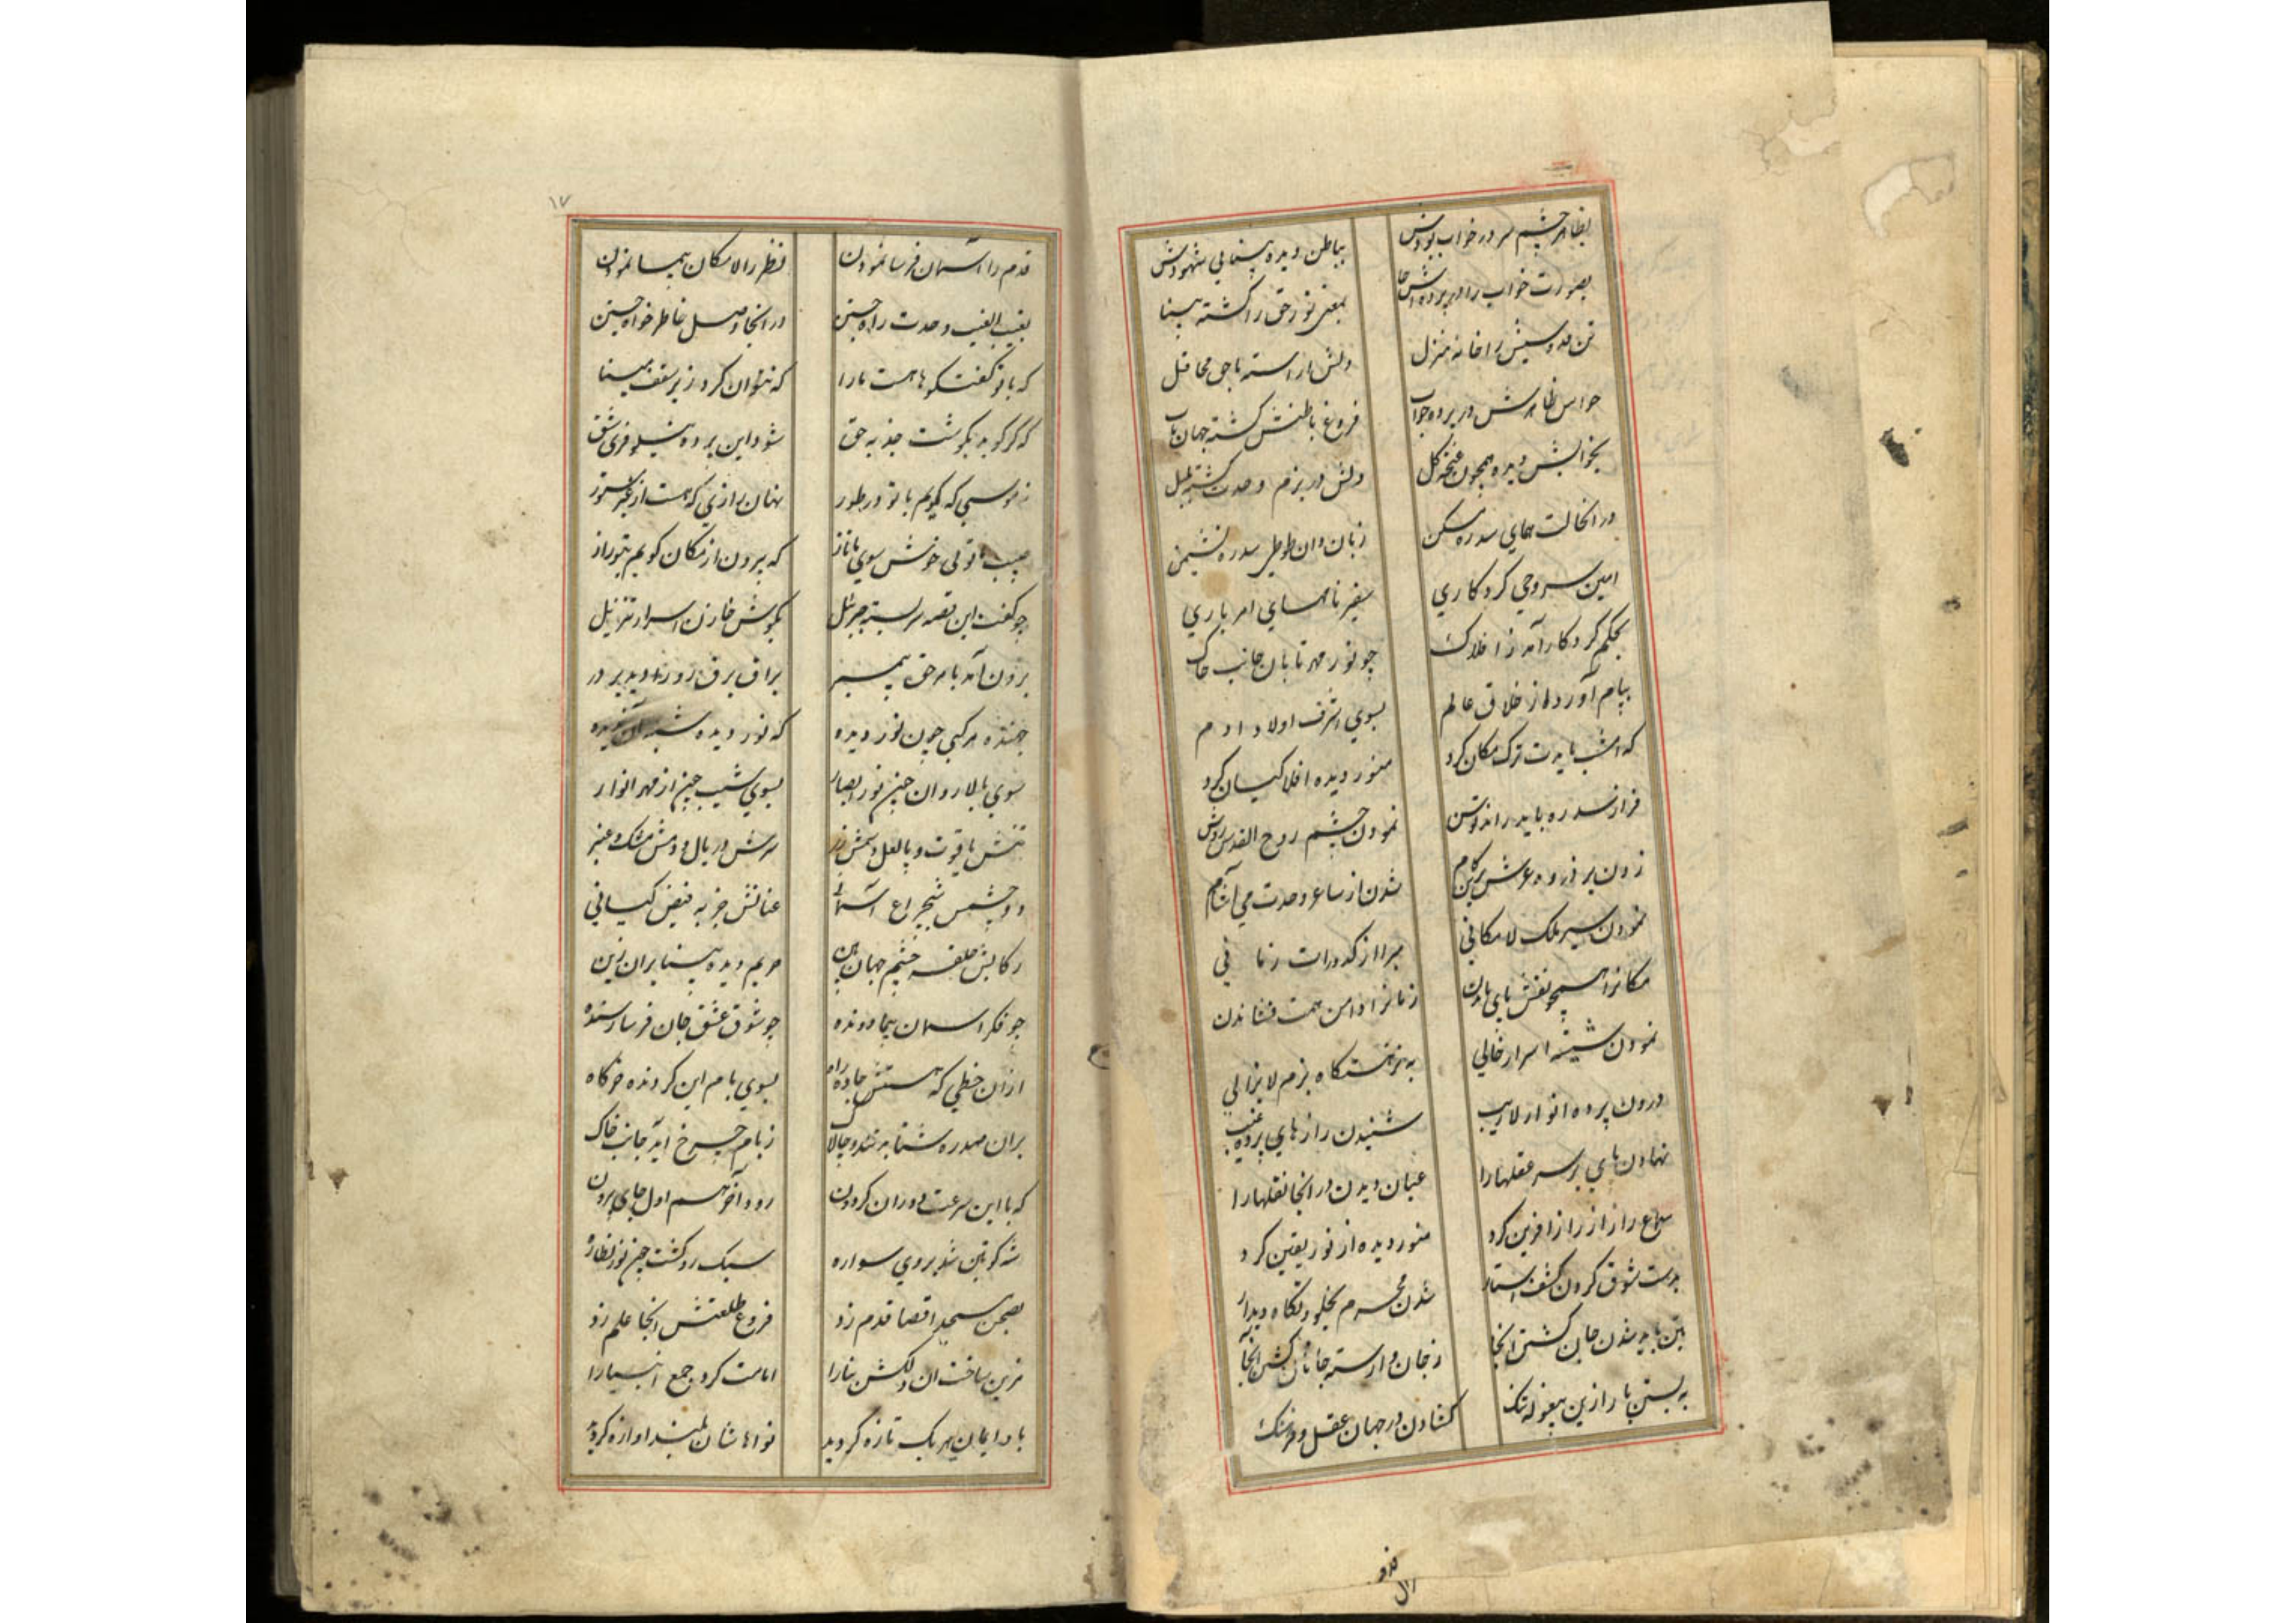 بظاهر چشم سر در خواب بودش بباطن دیده بینائی شهودش
بصورت خواب را در پرده معنی نور حق را گشته بینا
تن قدوسیش را خانه منزل دلش آراسته با حق محافل
حواس ظاهرش در پرده خواب فروغ باطنش گشته جهان تاب
بخوابش دیده همچون غنچه گل دلش در بزم وحدت گشته بلبل
در انحالت همای سدره مسکن زبان دان طوطی سدره نشیمن
امین وحی کردکاری سفیر نامهای امر باری
بحکم کردکار آمد ز افلاک چو نور مهر تابان جانب خاک
پیام آورد از خلاق عالم بسوی اشرف اولاد ادم
که امشب بایدت ترک مکان کرد منور دیده افلاکیان کرد
فراز سدره باید راند نمودن چشم روح القدس روشن
زدن بر ذروه عرش برین کام شدن از ساغر وحدت می آشام
نمودن سیر ملک لامکانی مبرا از کدورات زمانی
مکانرا همچو نقش پای زمانرا دامن همت فشاندن
نمودن شیشه اسرار خالی به نزهتگاه بزم لایزالی
درون پرده انوار لاریب شنیدن رازهای پرده غیب
نهادن پای بر سر عقلها را عیان دیدن در انجا نقلها را
سماع راز از راز افرین کرد منور دیده از نور یقین کرد
بدست شوق کردن کشف استار شدن محرم بخلوتگاه دیدار
بتن باید شدن جان گشتن انجا ز جان وارسته جانان گشتن آنجا
به بستن بار ازین بیغوله تنک گشادن در جهان عقل و فرهنگ
۱۷
قدم را آسمان فرسا نمودن نظر را لامکان پیما نمودن
بغیب الغیب وحدت راه جستن در انجا وصل خاطر خواه جستن
که با تو گفتگوها هست ما را که نتوان کرد زیر سقف مینا
که گر گوید بگوشت جذبه حق شود این پرده نیلوفری شق
نه موسی که گویم با تو در طور نهان رازی که هست از غیر مستور
حبیب خوش سوی ما تاز که بیرون از مکان گویم بتو راز
چو گفت این قصه سربسته جبرئیل بگوش خازن اسرار تنزیل
برون آمد بامر حق پیمبر براق برق رو را دید بر در
جهنده مرکبی چون نور دیده که نور دیده شبه آن ندیده
سوی بالا روان چون نور ابصار بسوی شیب چون از مهر انوار
تنش یاقوت و پا لعل و سمش زر سرش در یال و دمش مشک و عنبر
دو چشمش شبچراغ آسمانی عنانش جذبه فیض کیانی
رکابش حلقه چشم جهان بین حریم دیده بینا بران زین
چو فکر اسمان پیما دونده چو شوق عشق جان فرسا رسنده
ازان خطی که هستش جاده راه بسوی بام این گردنده خرگاه
بران صدره شتابد تند و چالاک ز بام چرخ آید جانب خاک
که با این سرعت دوران گردون رود آخر هم اول جای بیرون
شه کونین شد بروی سواره سبک رو گشت چون نور نظاره
بصحن مسجد اقصا قدم زد فروغ طلعتش انجا علم زد
مزین ساخت ان دلکش بنا را امامت کرد جمع انبیا را
باو ایمان هر یک تازه گردید نواهاشان بلند اوازه گردید